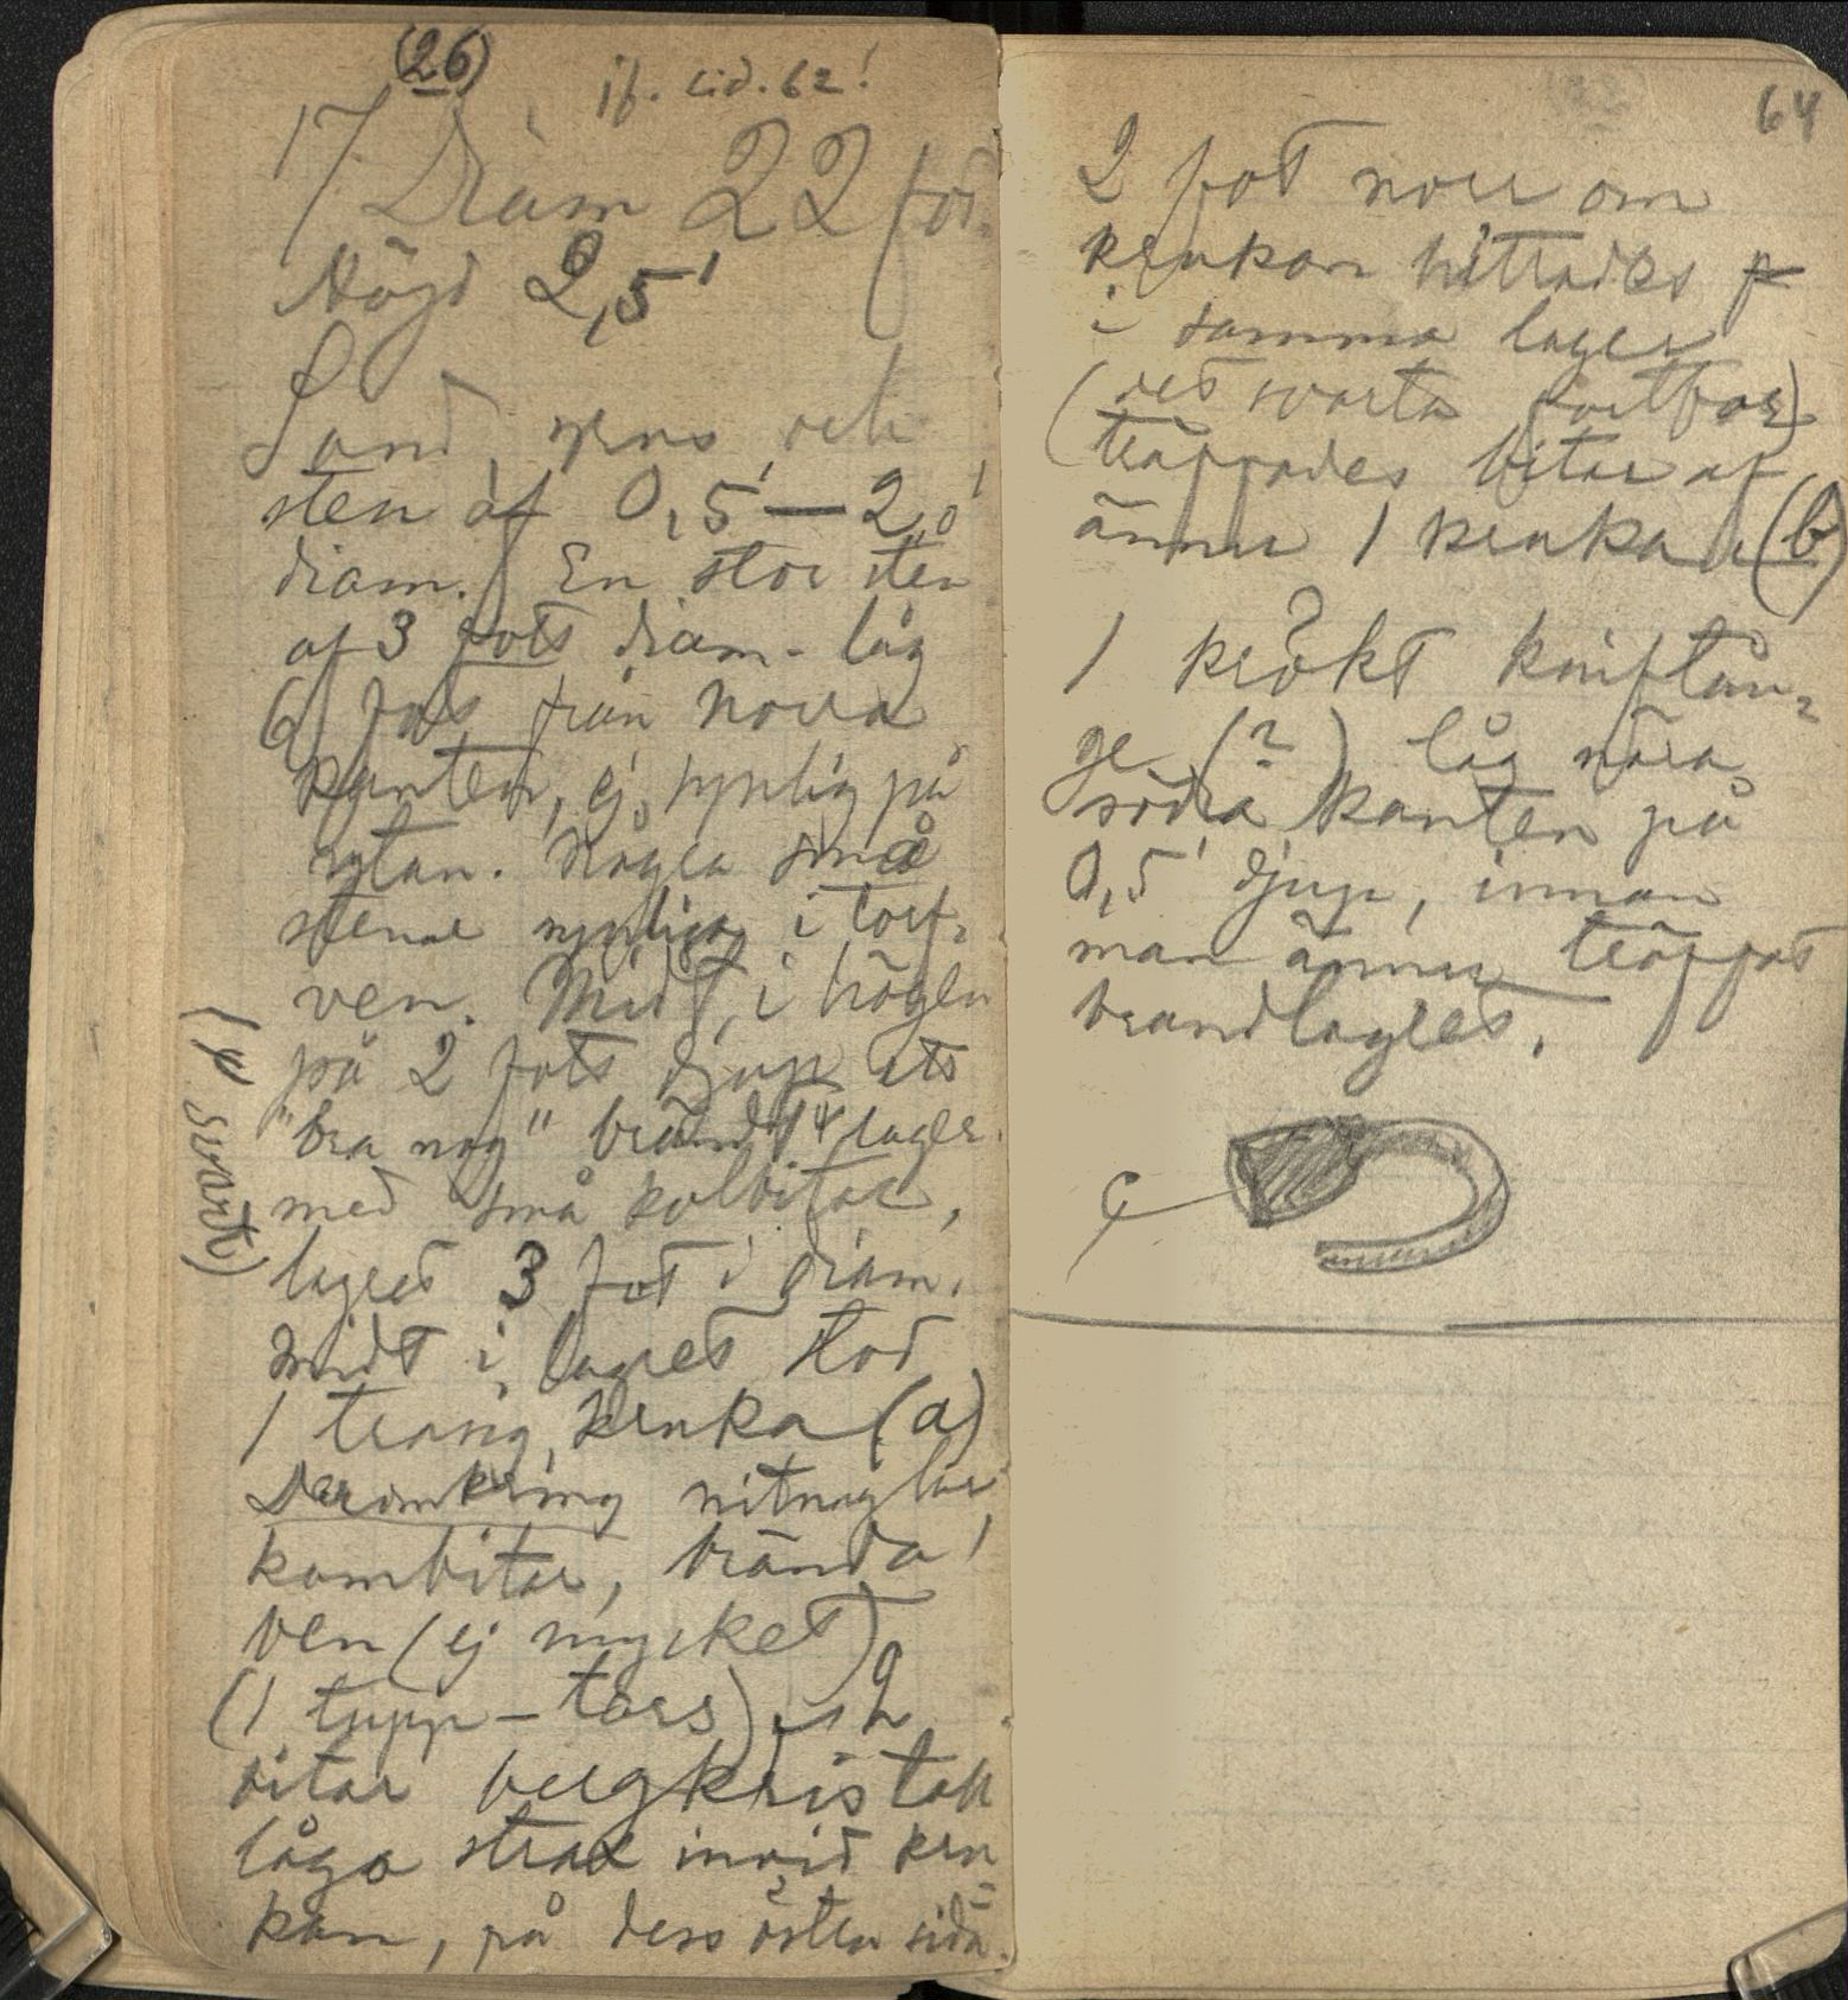 (26)
jf. sid. 62!
17 Diam 22 fot.
Höjd 2,5'
Sand, grus och
sten af 0,5'—2,0'
diam. En stor sten
af 3 fots diam. låg
6 fot från norra
kanten, ej synlig på
ytan. Några små
stenar synliga i torf-
ven. Midt i högen
på 2 fots djup ett
"bra nog" brändt lager
(ej svart)
med små kolbitar,
lagret 3 fot i diam.
Midt i lagret stod
1 trasig kruka (a)
Deromkring nitnaglar,
kambitar, brända
ben (ej mycket)
(1 tupp-tass). 2
bitar bergkristall
lågo strax invid kru-
kan, på dess östra sida.
64
2 fot norr om
krukan hittades
i samma lager
(det svarta fortfor)
träffades bitar af
ännu 1 kruka (b)
1 krökt kniftån-
ge (?) låg nära
södra kanten på
0,5' djup, innan
man ännu träffat
brandlagret.
c